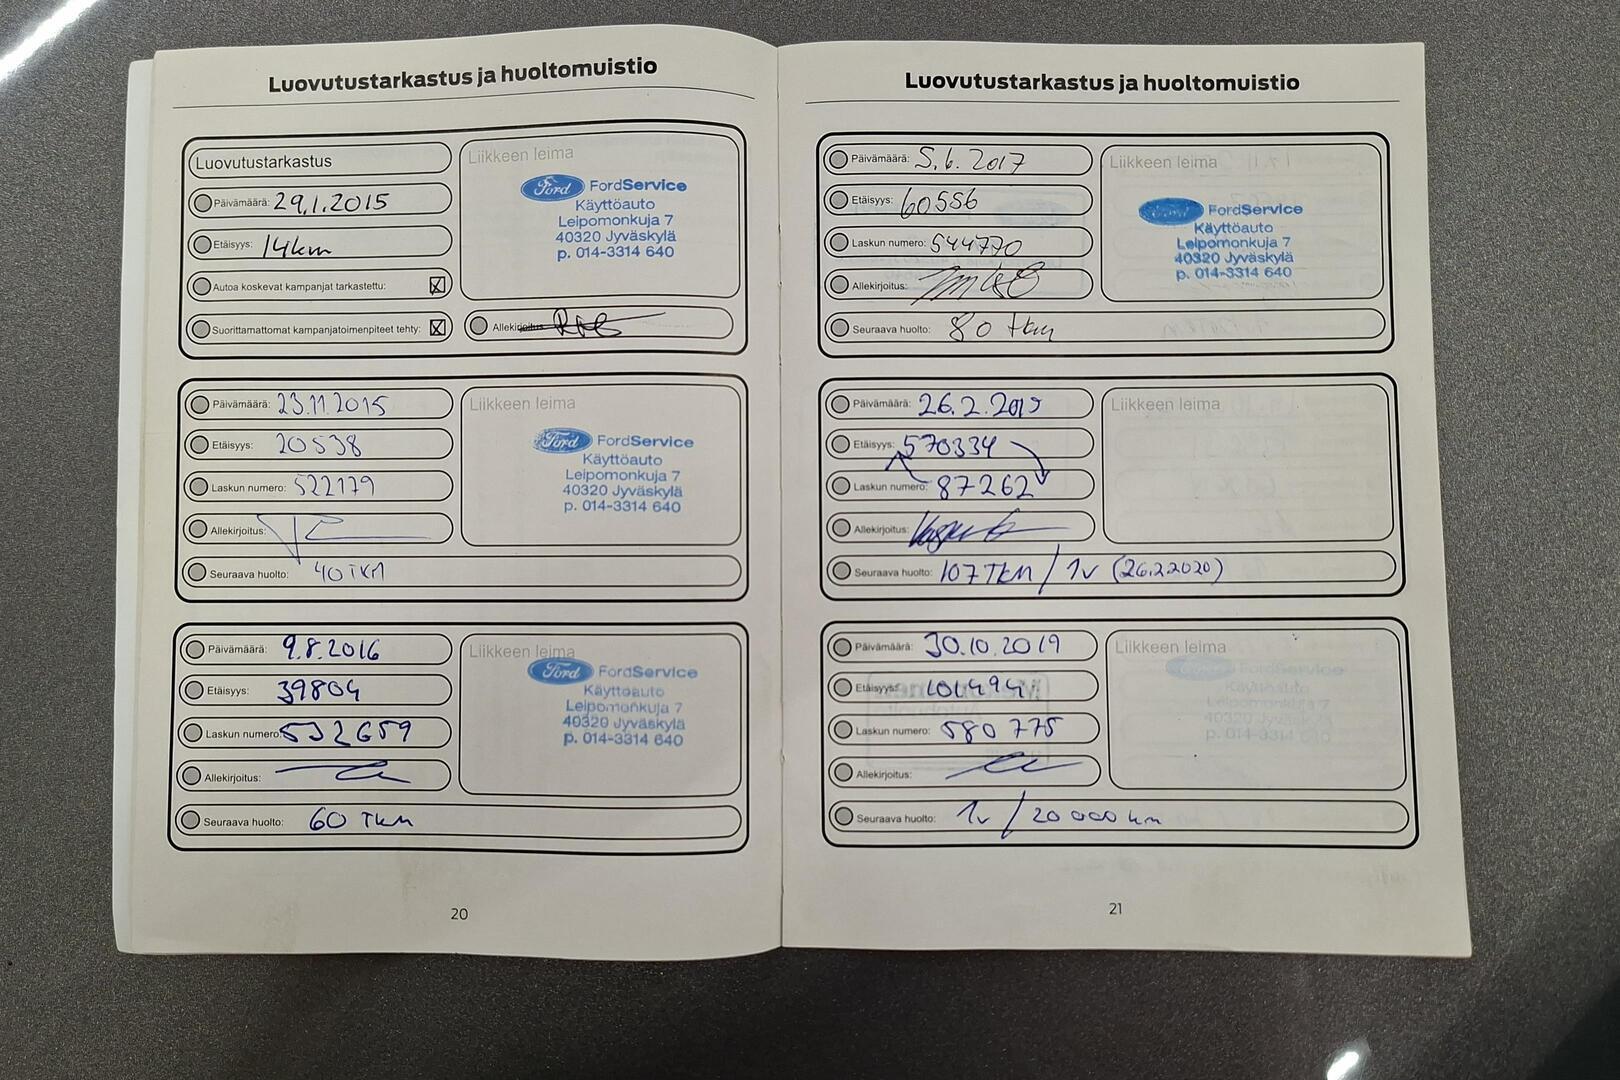 Luovutustarkastus ja huoltomuistio
Luovutustarkastus
Päivämäärä: 29.1.2015
Etäisyys: 14km
Autoa koskevat kampanjat tarkastettu: X
Suorittamattomat kampanjatoimenpiteet tehty: X
Liikkeen leima
Ford FordService
Käyttöauto
Leipomonkuja 7
40320 Jyväskylä
p. 014-3314 640
Allekirjoitus:
Päivämäärä: 23.11.2015
Etäisyys: 20538
Laskun numero: 522179
Allekirjoitus:
Seuraava huolto: 40 TKM
Liikkeen leima
Ford FordService
Käyttöauto
Leipomonkuja 7
40320 Jyväskylä
p. 014-3314 640
Päivämäärä: 9.8.2016
Etäisyys: 39804
Laskun numero: 532659
Allekirjoitus:
Seuraava huolto: 60 TKM
Liikkeen leima
Ford FordService
Käyttöauto
Leipomonkuja 7
40320 Jyväskylä
p. 014-3314 640
20
Luovutustarkastus ja huoltomuistio
Päivämäärä: 5.6.2017
Etäisyys: 60556
Laskun numero: 544770
Allekirjoitus:
Seuraava huolto: 80 Tkm
Liikkeen leima
Ford FordService
Käyttöauto
Leipomonkuja 7
40320 Jyväskylä
p. 014-3314 640
Päivämäärä: 26.2.2019
Etäisyys: 570334
Laskun numero: 87262
Allekirjoitus:
Seuraava huolto: 107 TKM / 1v (26.2.2020)
Liikkeen leima
Päivämäärä: 30.10.2019
Etäisyys: 101494
Laskun numero: 580775
Allekirjoitus:
Seuraava huolto: 1v / 20 000 km
Liikkeen leima
Ford FordService
Käyttöauto
Leipomonkuja 7
40320 Jyväskylä
p. 014-3314 640
21